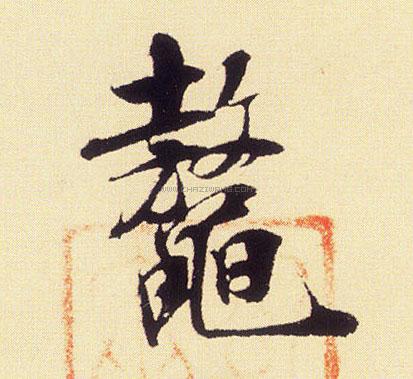 鼇
WWW.CHAZIWANG.COM